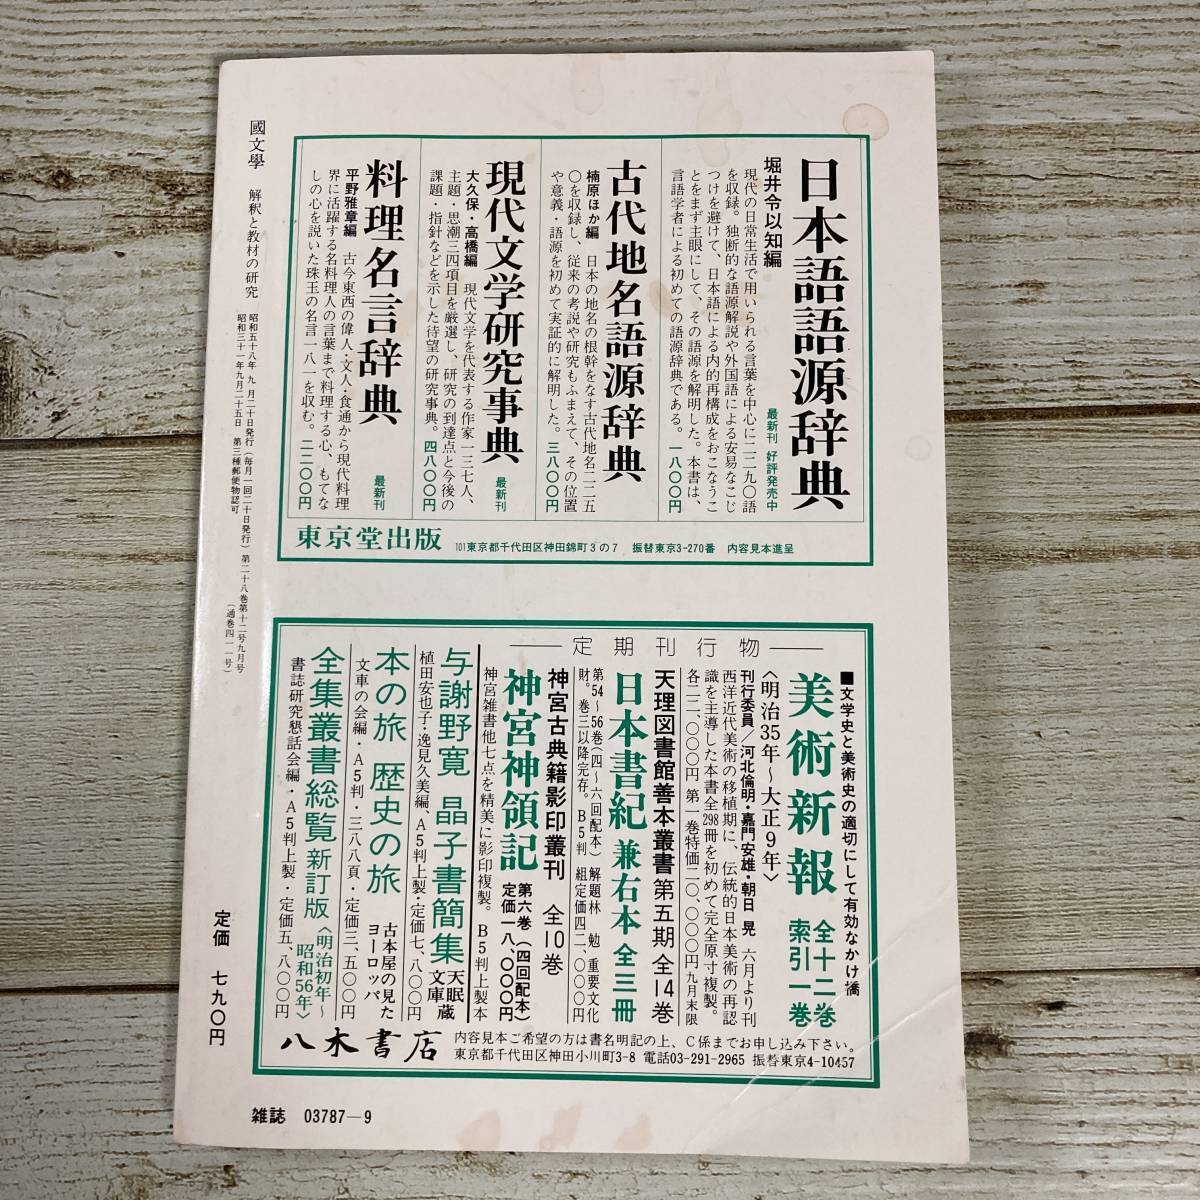 日本語語源辞典
堀井令以知編
最新刊 好評発売中
現代の日常生活で用いられる言葉を中心に二二九〇語
を収録。独断的な語源解説や外国語による安易なこじ
つけを避けて、日本語による内的再構成をおこなうこ
とをまず主眼にして、その語源を解明した。本書は、
言語学者による初めての語源辞典である。一八〇〇円
古代地名語源辞典
楠原ほか編 日本の地名の根幹をなす古代地名二二五
〇を収録し、従来の考説や研究もふまえて、その位置
や意義・語源を初めて実証的に解明した。三八〇〇円
現代文学研究事典
最新刊
大久保・高橋編 現代文学を代表する作家一三七人、
主題・思潮三四項目を厳選し、研究の到達点と今後の
課題・指針などを示した待望の研究事典。四八〇〇円
料理名言辞典
最新刊
平野雅章編 古今東西の偉人・文人・食通から現代料理
界に活躍する名料理人の言葉まで料理する心、もてな
しの心を説いた珠玉の名言一八一一を収む。二二〇〇円
東京堂出版 101東京都千代田区神田錦町3の7 振替東京3-270番 内容見本進呈
定期刊行物
■文学史と美術史の適切にして有効なかけ橋
美術新報 全十二巻 索引一巻
〈明治35年〜大正9年〉
刊行委員/河北倫明・嘉門安雄・朝日 晃 六月より刊
西洋近代美術の移植期に、伝統的日本美術の再認
識を主導した本書全298冊を初めて完全原寸複製。
各二二、〇〇〇円 第一巻特価二〇、〇〇〇円九月末限
天理図書館善本叢書 第五期 全14巻
日本書紀 兼右本 全三冊
第54〜56巻(四〜六回配本) 解題林 勉 重要文化
財。巻三以降完存。B5判 組定価四二、〇〇〇円
神宮古典籍影印叢刊 全10巻
神宮神領記 第六巻(四回配本) 定価一八、〇〇〇円
神宮雑書他七点を精美に影印複製。B5判上製本
与謝野寛 晶子書簡集 天眠文庫蔵
植田安也子・逸見久美編、A5判上製・定価七、八〇〇円
本の旅 歴史の旅 古本屋の見たヨーロッパ
文車の会編・A5判・三八八頁・定価三、五〇〇円
全集叢書総覧 新訂版 〈明治初年〜昭和56年〉
書誌研究懇話会編・A5判上製・定価五、八〇〇円
八木書店 内容見本ご希望の方は書名明記の上、C係までお申し込み下さい。
東京都千代田区神田小川町3-8 電話03-291-2965 振替東京4-10457
國文學 解釈と教材の研究
昭和五十八年 九月二十日発行(毎月一回二十日発行)第二十八巻第十二号九月号
昭和三十一年九月二十五日 第三種郵便物認可
(通巻四一一号)
定価 七九〇円
雑誌 03787-9